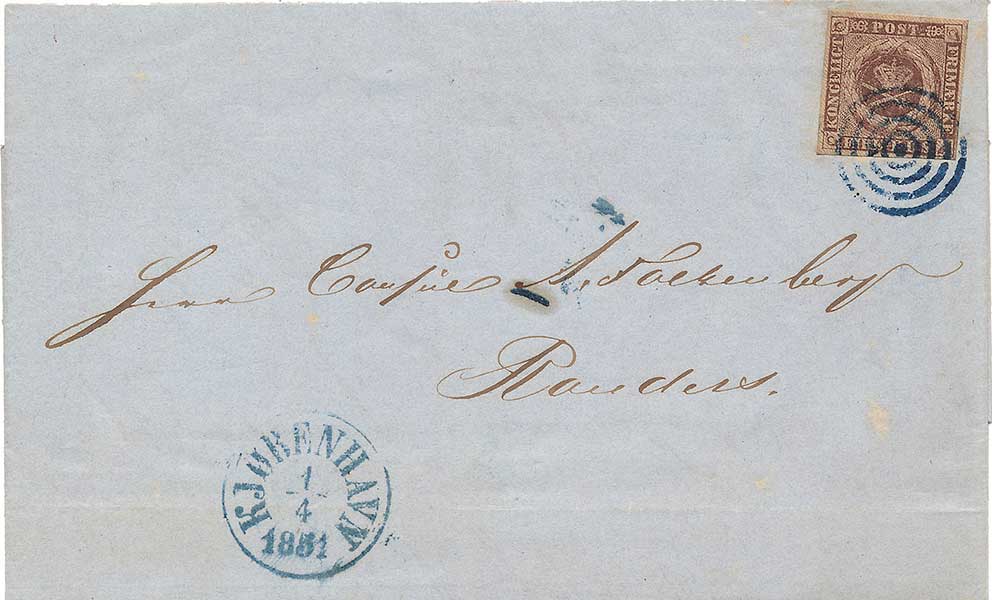 KONGELIGT POST FRIMÆRKE
Herr Consul A. Falkenberg
Randers.
KJØBENHAVN
1
4
1851